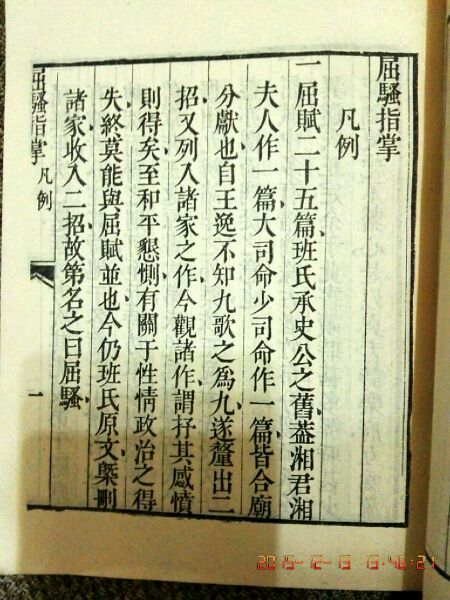 屈騷指掌
凡例
一屈賦二十五篇、班氏承史公之舊、葢湘君湘
夫人作一篇、大司命少司命作一篇、皆合廟
分獻也、自王逸不知九歌之為九、遂釐出二
招、又列入諸家之作、今觀諸作、謂抒其感憤
則得矣、至和平懇惻、有關于性情政治之得
失、終莫能與屈賦並也、今仍班氏原文、槩刪
諸家、收入二招、故第名之曰屈騷、
屈騷指掌 凡例 一
2015-12-13 13:46:21